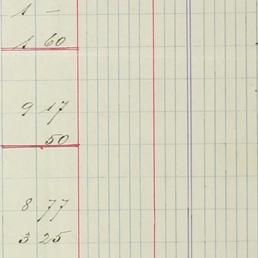 1 –
1 60
9 17
50
8 77
3 25